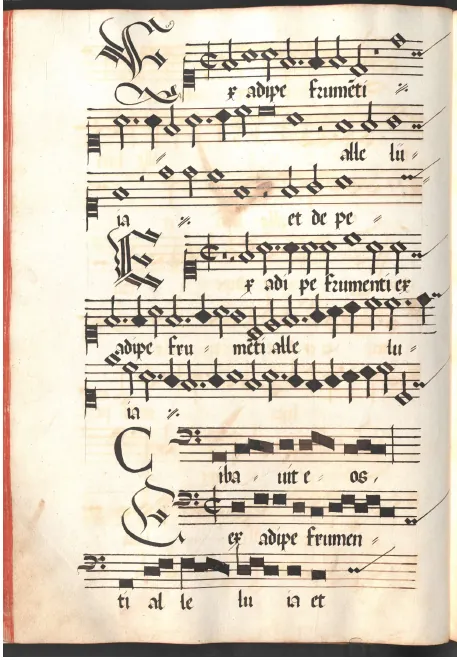 Ex adipe frumēti
alle lu
ia et de pe
Ex adi pe frumenti ex
adipe fru mēti alle lu
ia
Ciba uit e os
Eex adipe frumen
ti al le lu ia et